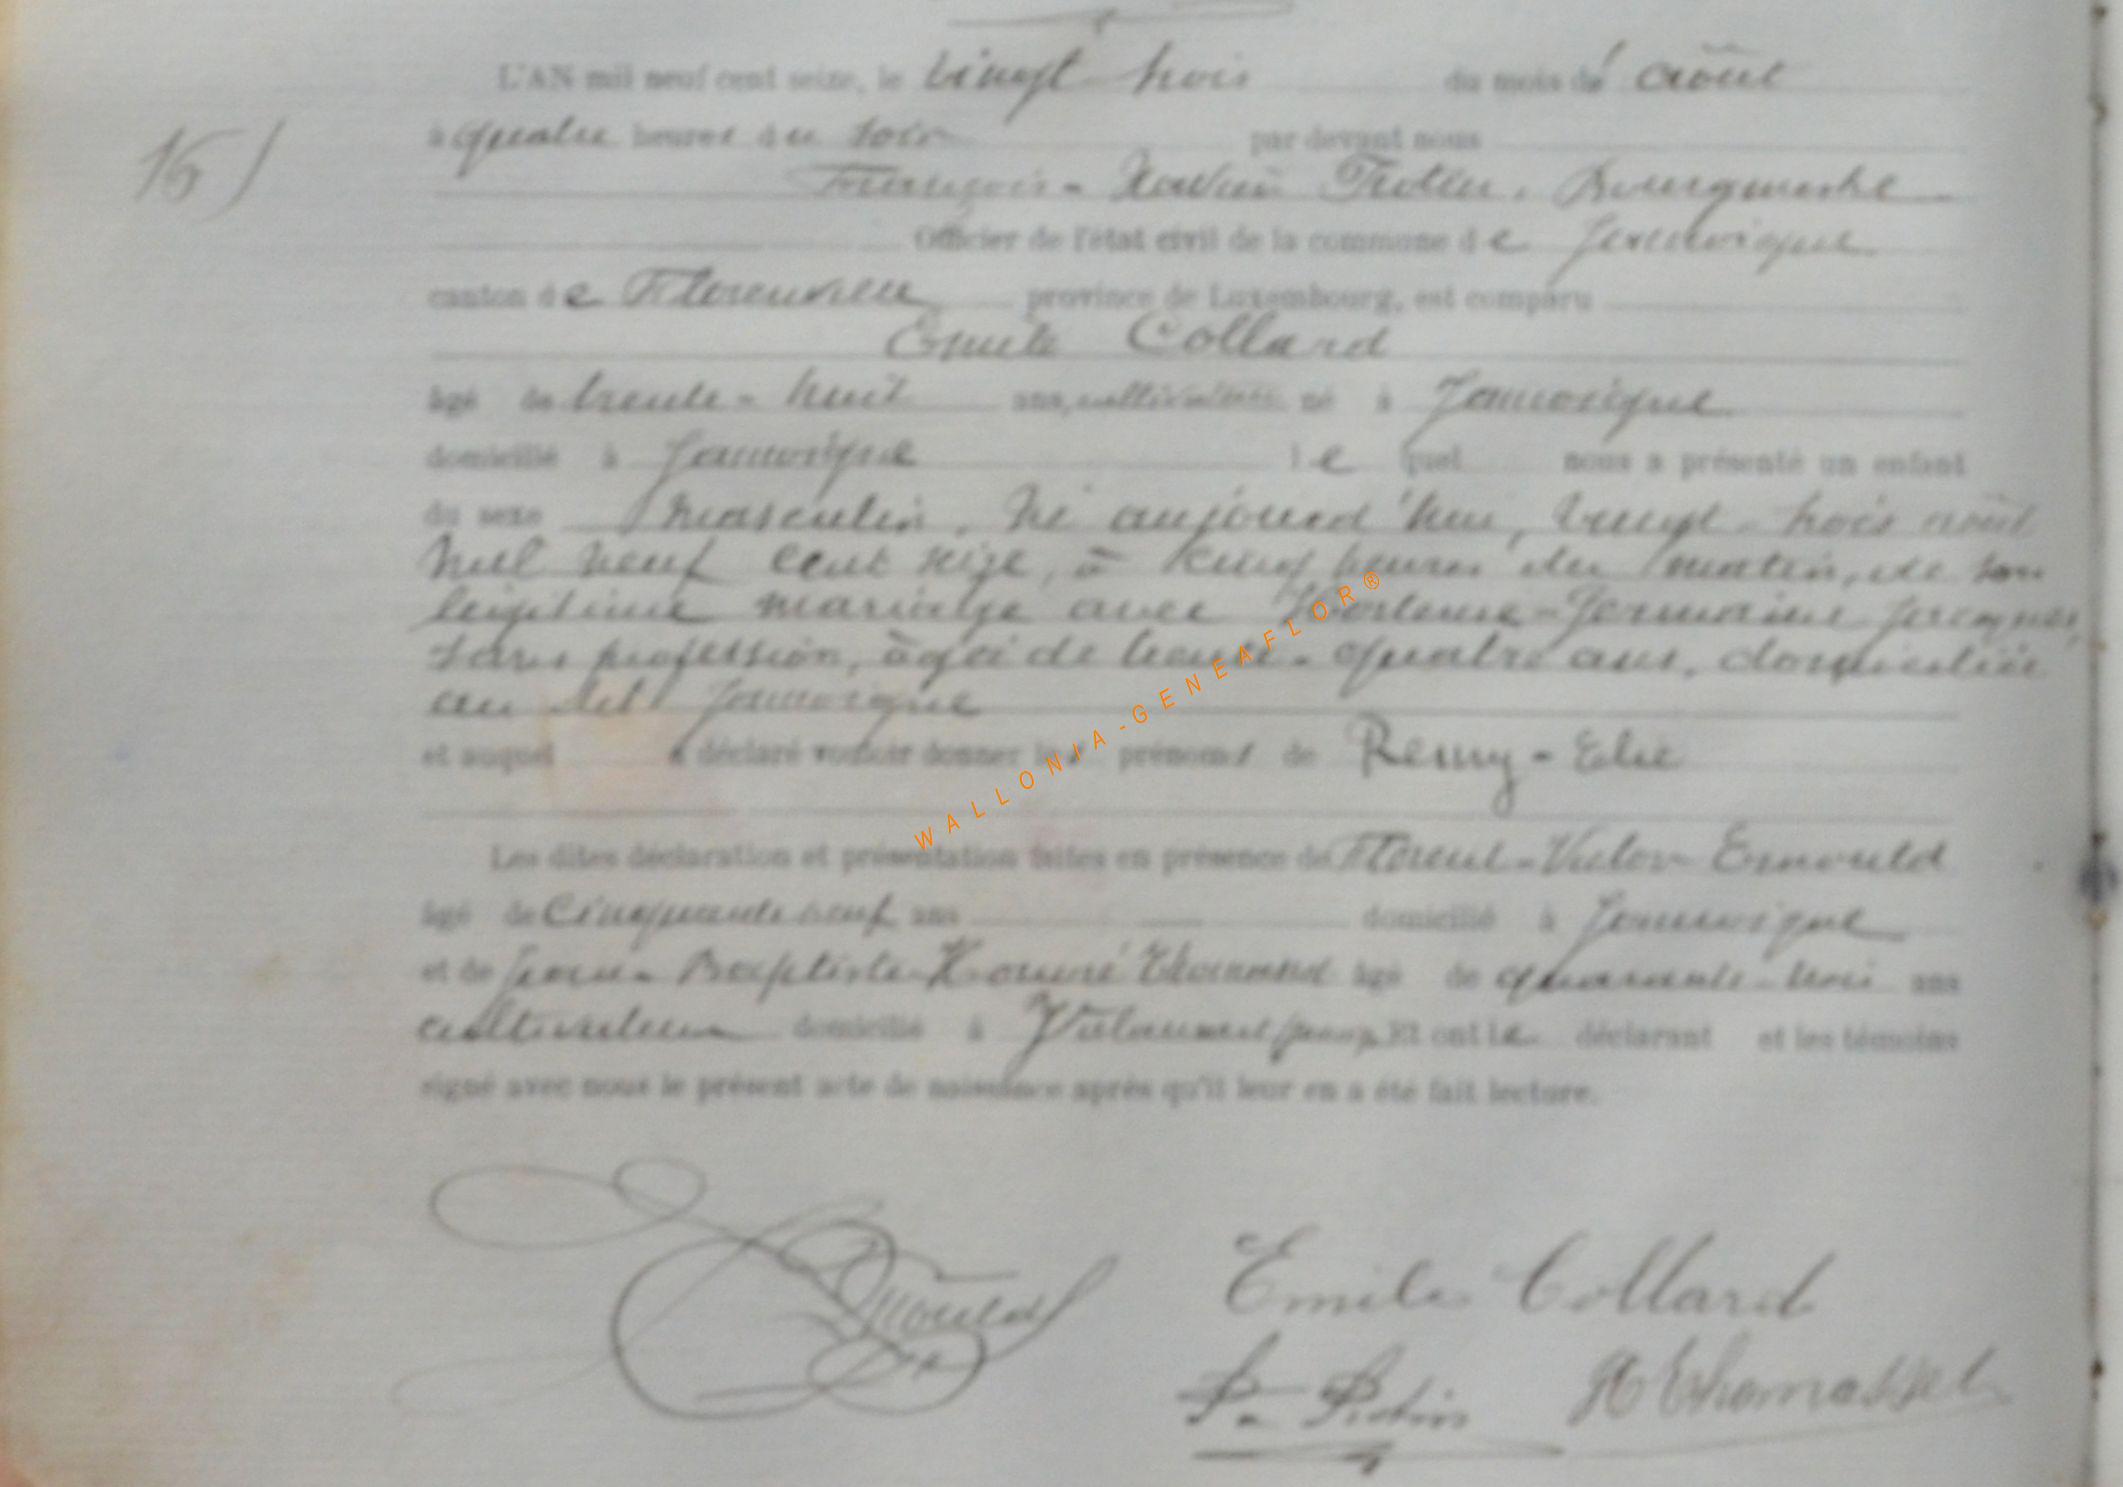 L'AN mil neuf cent seize, le vingt trois du mois d' août
16)
à quatre heures du soir par devant nous
François-Xavier Bourgmestre
Officier de l'état civil de la commune de Jamoigne
canton de Florenville province de Luxembourg, est comparu
Emile Collard
âgé de trente-huit ans, cultivateur né à Jamoigne
domicilié à Jamoigne lequel nous a présenté un enfant
du sexe masculin, né aujourd'hui, vingt-trois août
mil neuf cent seize, à cinq heures du matin, de son
légitime mariage avec Hortense-Germaine Jacques,
sans profession, âgée de trente-quatre ans, domiciliée
au dit Jamoigne
et auquel a déclaré vouloir donner les prénoms de Remy-Elie
Les dites déclaration et présentation faites en présence de Florent-Victor Ernould
âgé de cinquante neuf ans domicilié à Jamoigne
et de Jean-Baptiste-Honoré Thomasset âgé de quarante-trois ans
cultivateur domicilié à Et ont le déclarant et les témoins
signé avec nous le présent acte de naissance après qu'il leur en a été fait lecture.
WALLONIA-GENEAFLOR®
Ernould
Emile Collard
H Thomasset